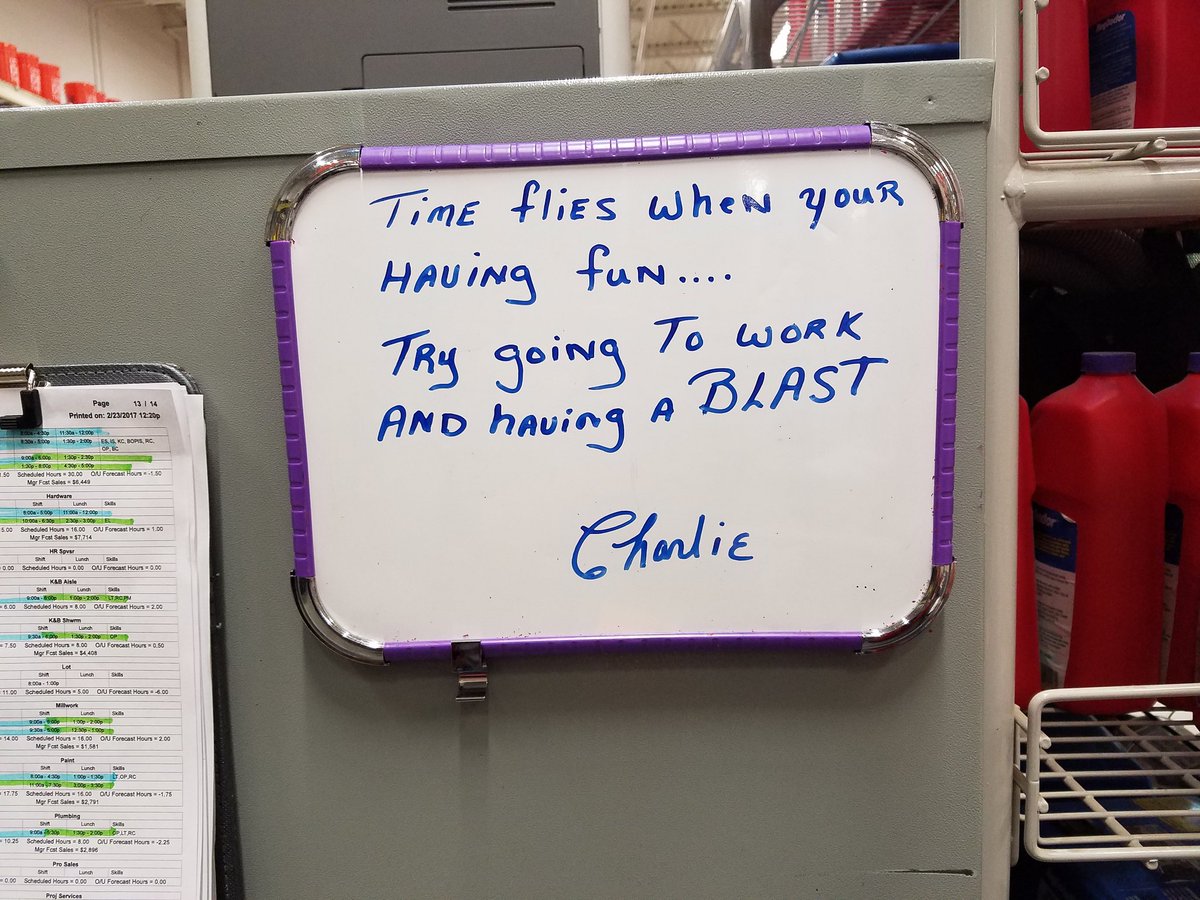 TIME flies when your
HAVING fun....
TRY going To work
AND having A BLAST
Charlie
Page 13 / 14
Printed on: 2/23/2017 12:20p
11:30a - 12:00p
8:30a - 5:00p 1:30p - 2:00p ES, IS, KC, BOPIS, RC, OP, BC
9:00a - 6:00p 1:30p - 2:30p
1:30p - 8:00p 4:30p - 5:00p
Scheduled Hours = 30.00 O/U Forecast Hours = -1.50
Mgr Fcst Sales = $6,449
Hardware
Shift Lunch Skills
8:00a - 5:00p 11:00a - 12:00p
10:00a - 6:30p 2:30p - 3:00p EL
5.00 Scheduled Hours = 16.00 O/U Forecast Hours = 1.00
Mgr Fcst Sales = $7,714
HR Spvsr
Shift Lunch Skills
0.00 Scheduled Hours = 0.00 O/U Forecast Hours = 0.00
K&B Aisle
Shift Lunch Skills
9:00a - 6:00p 1:00p - 2:00p LT,RC,PM
= 6.00 Scheduled Hours = 8.00 O/U Forecast Hours = 2.00
K&B Shwrm
Shift Lunch Skills
9:30a - 6:00p 1:30p - 2:00p OP
= 7.50 Scheduled Hours = 8.00 O/U Forecast Hours = 0.50
Mgr Fcst Sales = $4,408
Lot
Shift Lunch Skills
8:00a - 1:00p
11.00 Scheduled Hours = 5.00 O/U Forecast Hours = -6.00
Millwork
Shift Lunch Skills
9:00a - 6:00p 1:00p - 2:00p
9:30a - 12:30p - 1:00p
= 14.00 Scheduled Hours = 16.00 O/U Forecast Hours = 2.00
Mgr Fcst Sales = $1,581
Paint
Shift Lunch Skills
8:00a - 4:30p 1:00p - 1:30p LT,OP,RC
11:00a - 7:30p 3:00p - 3:30p
= 17.75 Scheduled Hours = 16.00 O/U Forecast Hours = -1.75
Mgr Fcst Sales = $2,791
Plumbing
Shift Lunch Skills
9:00a - 5:30p 1:30p - 2:00p OP,LT,RC
= 10.25 Scheduled Hours = 8.00 O/U Forecast Hours = -2.25
Mgr Fcst Sales = $2,896
Pro Sales
Shift Lunch Skills
= 0.00 Scheduled Hours = 0.00 O/U Forecast Hours = 0.00
Proj Services